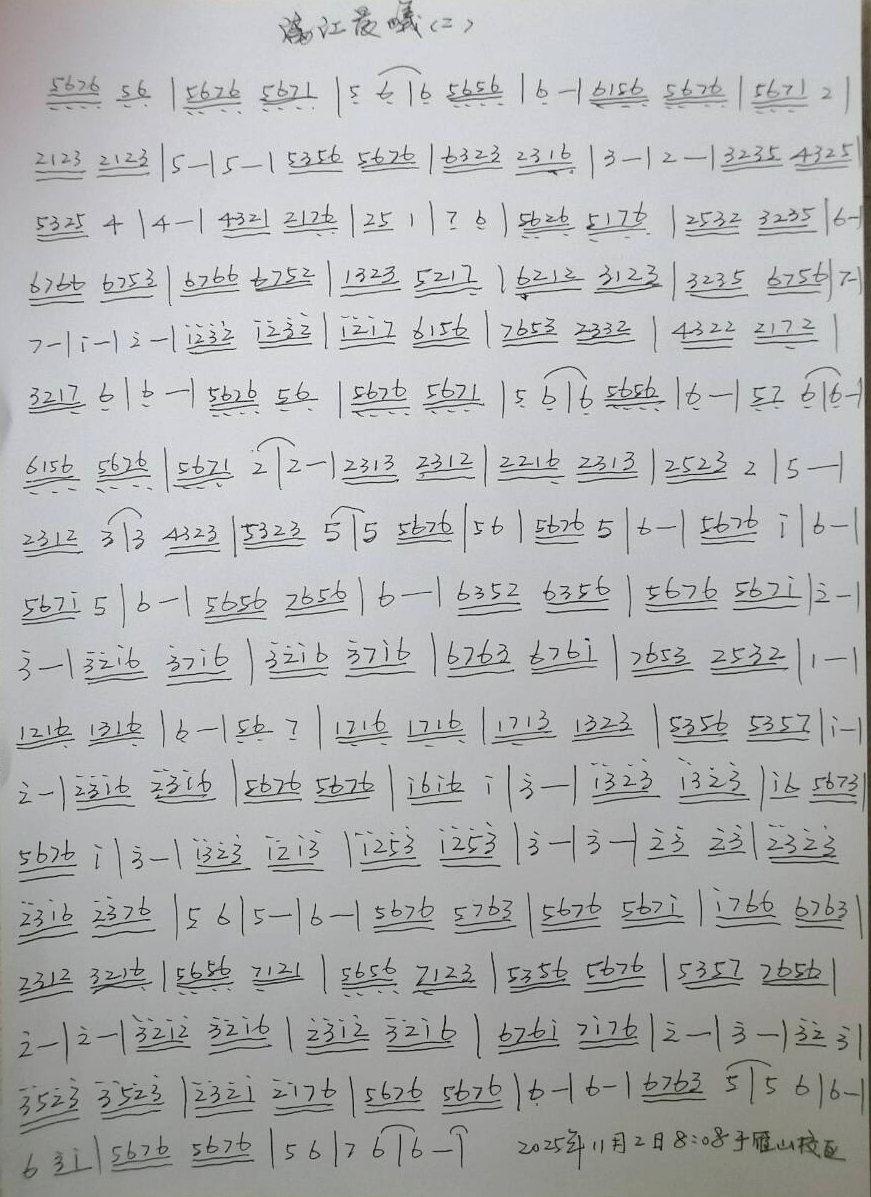 漓江晨曦(二)
5676 56 | 5676 5671 | 5 6 | 6 5656 | 6 - | 6156 5676 | 5671 2 |
2123 2123 | 5 - | 5 - | 5356 5676 | 6323 2316 | 3 - | 2 - | 3235 4325 |
5325 4 | 4 - | 4321 2176 | 25 1 | 7 6 | 5626 5176 | 2532 3235 | 6 - |
6766 6753 | 6766 6752 | 1323 5217 | 6212 3123 | 3235 6756 | 7 - |
7 - | i - | 2̇ - | i2̇3̇2̇ i2̇3̇2̇ | i2̇i7 6156 | 7653 2332 | 4322 2172 |
3217 6 | 6 - | 5626 56 | 5676 5671 | 5 6 | 6 5656 | 6 - | 57 6 | 6 - |
6156 5676 | 5671 2 | 2 - | 2313 2312 | 2216 2313 | 2523 2 | 5 - |
2312 3 | 3 4323 | 5323 5 | 5 5676 | 56 | 5676 5 | 6 - | 5676 i | 6 - |
567i 5 | 6 - | 5656 7656 | 6 - | 6352 6356 | 5676 567i | 2̇ - |
3̇ - | 3̇2̇i6 3̇7i6 | 3̇2̇i6 3̇7i6 | 6763 676i | 7653 2532 | 1 - |
1216 1316 | 6 - | 56 7 | 1716 1716 | 1713 1323 | 5356 5357 | i - |
2̇ - | 2̇3̇i6 2̇3̇i6 | 5676 5676 | i6i6 i | 3̇ - | i3̇2̇3̇ i3̇2̇3̇ | i6 5673 |
5676 i | 3̇ - | i3̇2̇3̇ i2̇i3̇ | i2̇5̇3̇ i2̇5̇3̇ | 3̇ - | 3̇ - | 2̇3̇ 2̇3̇ | 2̇3̇2̇3̇
2̇3̇i6 2̇3̇76 | 5 6 | 5 - | 6 - | 5676 5763 | 5676 567i | i766 6763 |
2312 3216 | 5656 7121 | 5656 7123 | 5356 5676 | 5357 7656 |
2̇ - | 2̇ - | 3̇2̇i2̇ 3̇2̇i6 | 2̇3̇i2̇ 3̇2̇i6 | 676i 7i76 | 2̇ - | 3̇ - | 3̇2̇ 3̇ |
3̇5̇2̇3̇ 3̇5̇2̇3̇ | 2̇3̇2̇i 2̇i76 | 5676 5676 | 6 - | 6 - | 6763 5 | 5 6 | 6 - |
6 3̇i | 5676 5676 | 5 6 | 7 6 | 6 - | 2025年11月2日8:08于雁山校区